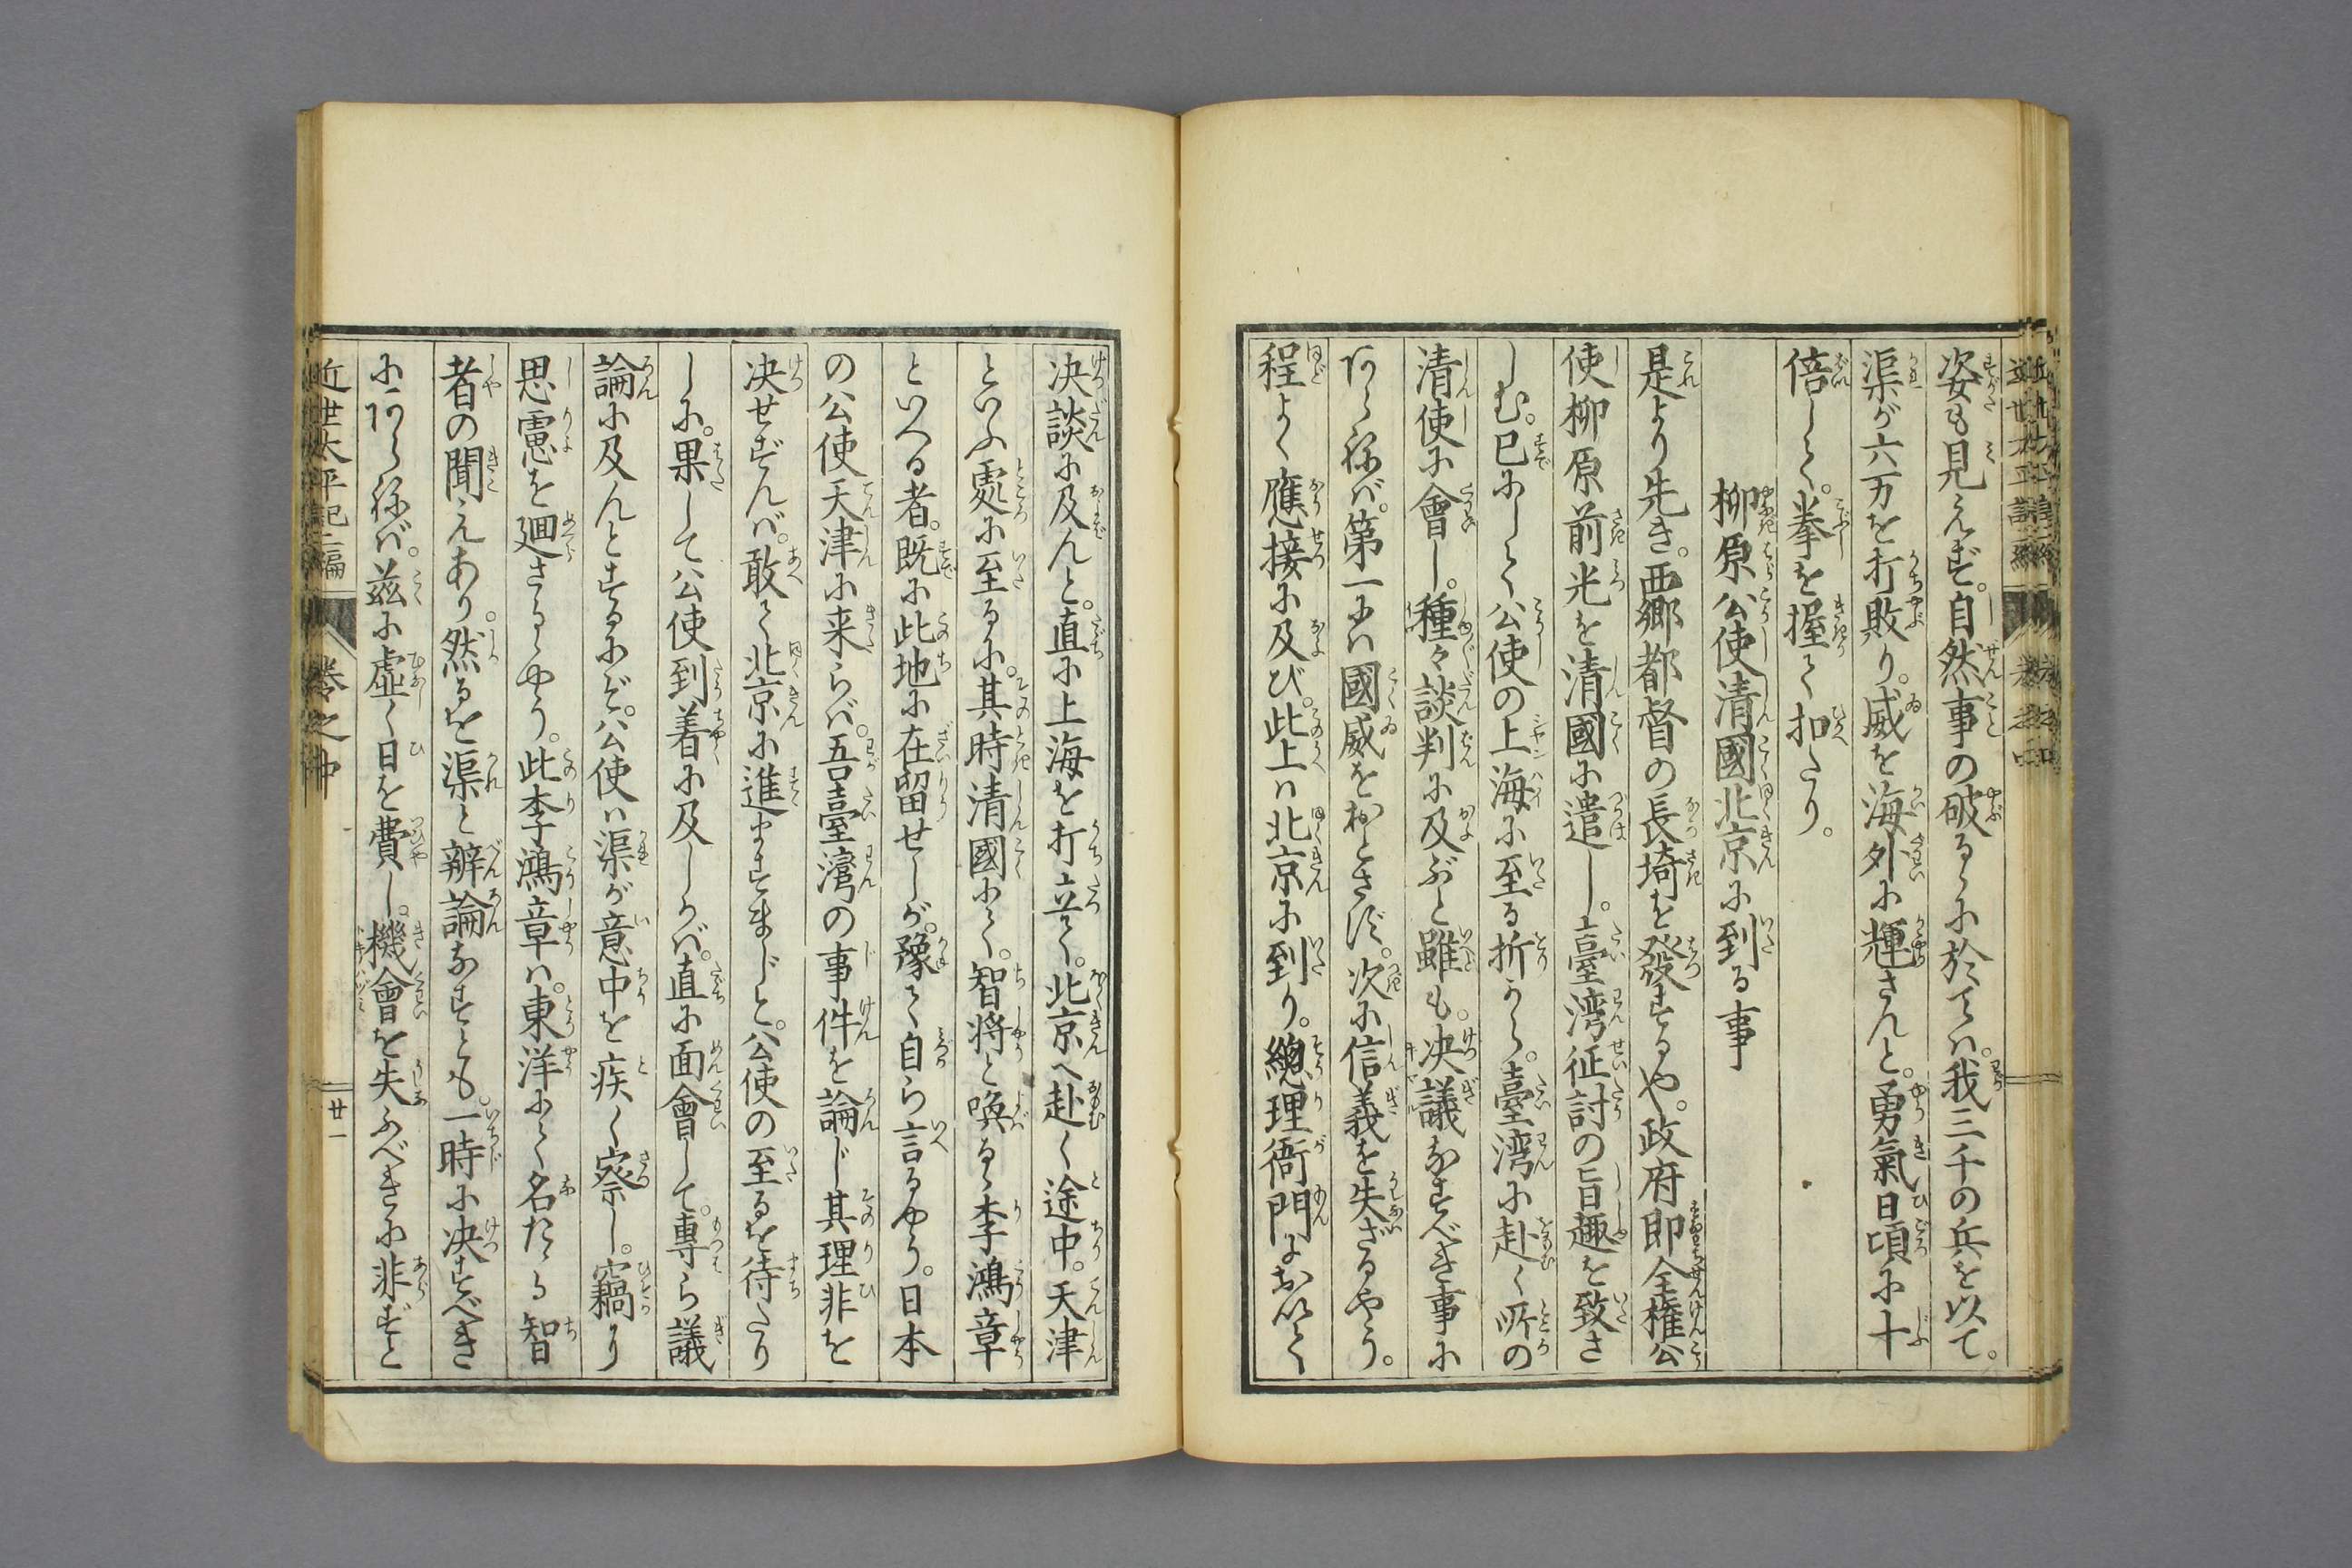 姿も見えず。自然事の破るゝに於ては。我三千の兵を以て。
渠が六万を打敗り。威を海外に輝さんと。勇氣日頃に十
倍して。拳を握て扣たり。
柳原公使清國北京に到る事
是より先き。西郷都督の長埼を發するや。政府即全権公
使柳原前光を清國に遣し。臺湾征討の旨趣を致さ
しむ。已にして公使の上海に至る折から。臺湾に赴く所の
清使に會し。種々談判に及ぶと雖も。决議なすべき事に
あらねば。第一には國威をおとさず。次に信義を失ざるやう。
程よく應接に及び。此上は北京に到り。總理衙門において
决談に及んと。直に上海を打立て。北京へ赴く途中。天津
といふ處に至るに。其時清國にて。智将と喚るゝ李鴻章
といへる者。既に此地に在留せしが。豫て自ら言るやう。日本
の公使天津に来らば。吾臺湾の事件を論じ其理非を
决せずんば。敢て北京に進ますまじと。公使の至るを待たり
しに。果して公使到着に及しかば。直に面會して。專ら議
論に及んとするにぞ。公使は渠が意中を疾く察し。竊り
思慮を廻さるゝやう。此李鴻章は。東洋にて名たゝる智
者の聞えあり。然るを渠と辨論なすとも。一時に决すべき
にあらねば。茲に虚く日を費し。機會を失ふべきに非ずと
近世太平記二編 卷之中 廿一